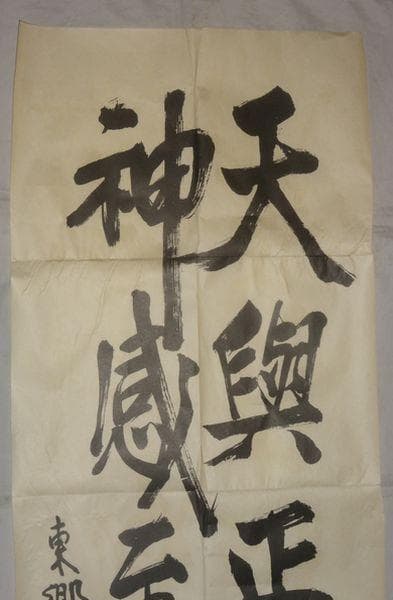 天與正
神感至
東郷